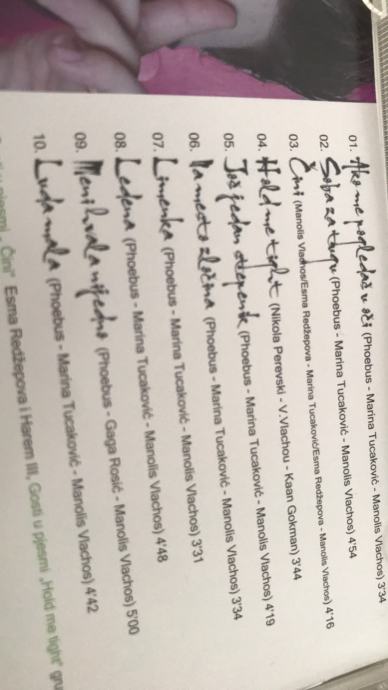 01. Ako me pogledaš u oči (Phoebus - Marina Tucaković - Manolis Vlachos) 3'34
02. Soba za tugu (Phoebus - Marina Tucaković - Manolis Vlachos) 4'54
03. Čini (Manolis Vlachos/Esma Redžepova - Marina Tucaković/Esma Redžepova - Manolis Vlachos) 4'16
04. Hold me tight (Nikola Perevski - V.Vlachou - Kaan Gokman) 3'44
05. Još jedan stepenik (Phoebus - Marina Tucaković - Manolis Vlachos) 4'19
06. Na mesto zločina (Phoebus - Marina Tucaković - Manolis Vlachos) 3'34
07. Limenka (Phoebus - Marina Tucaković - Manolis Vlachos) 3'31
08. Ledena (Phoebus - Marina Tucaković - Manolis Vlachos) 4'48
09. Meni hvala nijedno (Phoebus - Gaga Rosić - Manolis Vlachos) 5'00
10. Luda mala (Phoebus - Marina Tucaković - Manolis Vlachos) 4'42
u pjesmi „Čini“ Esma Redžepova i Harem III, Gosti u pjesmi „Hold me tight“